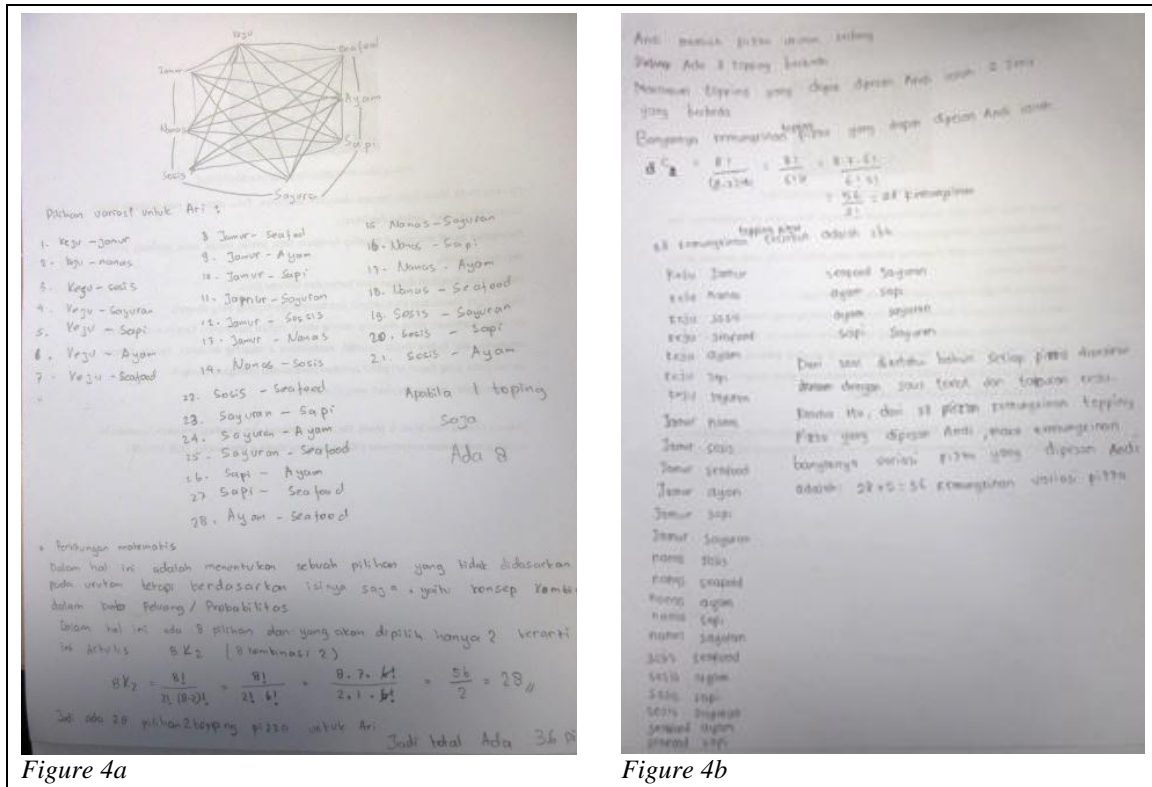 Keju
Jamur
Seafood
Nanas
Ayam
Sosis
Sapi
Sayuran
Pilihan variasi untuk Ari :
1. Keju - Jamur
2. Keju - nanas
3. Keju - sosis
4. Keju - Sayuran
5. Keju - Sapi
6. Keju - Ayam
7. Keju - Seafood
8. Jamur - Seafood
9. Jamur - Ayam
10. Jamur - Sapi
11. Jamur - Sayuran
12. Jamur - Sosis
13. Jamur - Nanas
14. Nanas - Sosis
15. Nanas - Sayuran
16. Nanas - Sapi
17. Nanas - Ayam
18. Nanas - Seafood
19. Sosis - Sayuran
20. Sosis - Sapi
21. Sosis - Ayam
22. Sosis - Seafood
23. Sayuran - Sapi
24. Sayuran - Ayam
25. Sayuran - Seafood
26. Sapi - Ayam
27 Sapi - Seafood
28. Ayam - Seafood
Apabila 1 toping
saja
Ada 8
* Perhitungan matematis
Dalam hal ini adalah menentukan sebuah pilihan yang tidak didasarkan
pada urutan tetapi berdasarkan isinya saja, yaitu konsep Kombi
dalam bab Peluang / Probabilitas
Dalam hal ini ada 8 pilihan dan yang akan dipilih hanya 2 berarti
ini ditulis 8K2 (8 kombinasi 2)
8K2 = 8!/2!(8-2)! = 8!/2! 6! = 8.7.6!/2.1.6! = 56/2 = 28
Jadi ada 28 pilihan 2 topping pizza untuk Ari
Jadi total Ada 36 Pi
Figure 4a
Andi memilih pizza ukuran sedang
Ada 8 topping berbeda
Maksimum topping yang dapat dipesan Andi 2 jenis
yang berbeda
topping
Banyaknya kemungkinan pizza yang dapat dipesan Andi
8C2 = 8! = 8! = 8.7.6!
= 56/2! = 28 kemungkinan
topping pizza
28 kemungkinan tersebut adalah sbb.
Keju Jamur
Keju nanas
Keju sosis
Keju seafood
Keju ayam
Keju sapi
Keju sayuran
Jamur nanas
Jamur sosis
Jamur seafood
Jamur ayam
Jamur sapi
Jamur sayuran
nanas sosis
nanas seafood
nanas ayam
nanas sapi
nanas sayuran
sosis seafood
sosis ayam
sosis sapi
sosis sayuran
seafood ayam
seafood sapi
seafood sayuran
ayam sapi
ayam sayuran
sapi sayuran
Dari soal diketahui bahwa setiap pizza disajikan
dengan saus tomat dan taburan keju.
Karena itu, dari 28 kemungkinan topping
Pizza yang dipesan Andi, maka kemungkinan
banyaknya variasi pizza yang dipesan Andi
adalah 28 + = 36 kemungkinan variasi pizza
Figure 4b